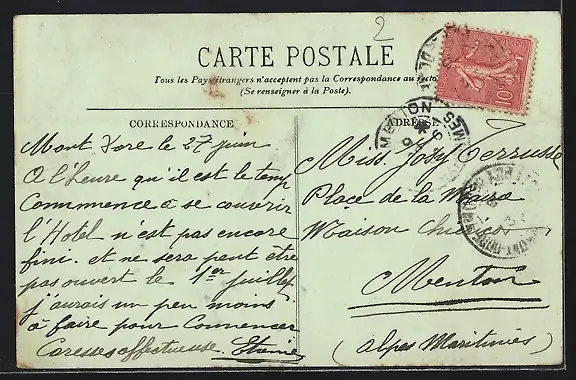 2
CARTE POSTALE
Tous les Pays étrangers n'acceptent pas la Correspondance au recto
(Se renseigner à la Poste).
CORRESPONDANCE
ADRESSE
Mont Dore le 27 juin
A l'heure qu'il est le temp
Commence a se couvrir
l'Hotel n'est pas encore
fini. et ne sera peut être
pas ouvert le 1er juillet
j'aurais un peu moins
à faire pour Commencer
Caresses affectueuse.
Miss. Joby Terrusse
Place de la Maira
Maison
Menton
(Alpes Maritimes)
MENTON
10c